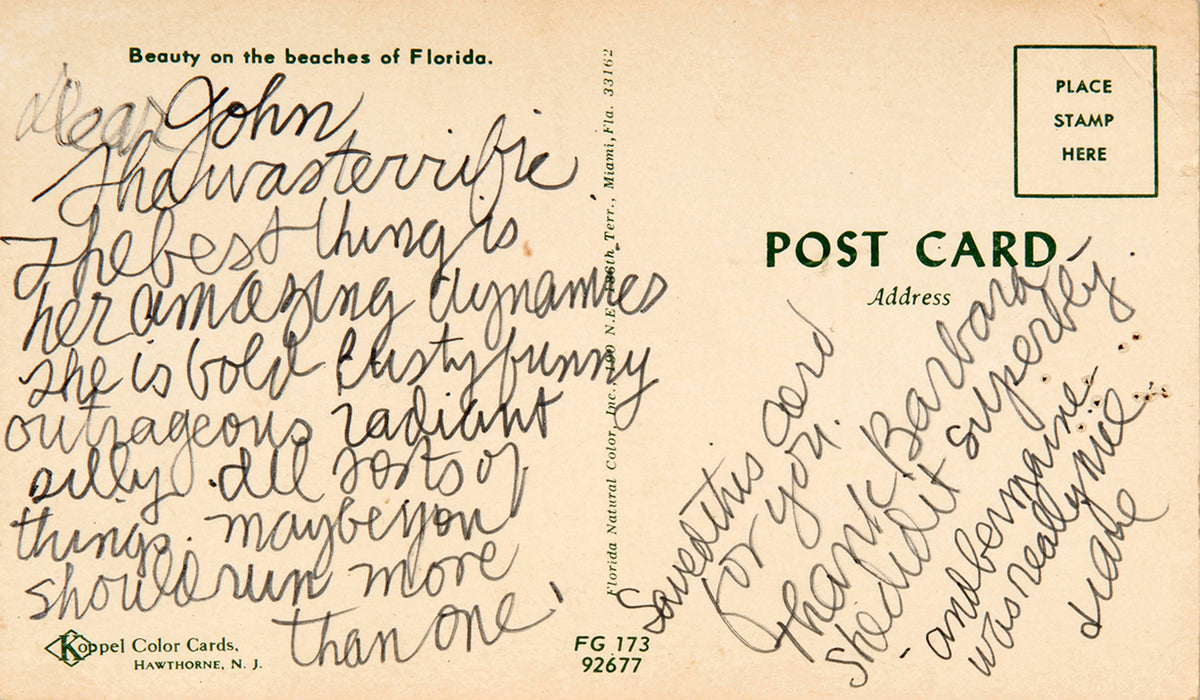 Beauty on the beaches of Florida.
Dear John
She was terrific
The best thing is
her amazing dynamics
she is bold lusty funny
outrageous radiant
silly. All sorts of
things. maybe you
should run more
than one!
Koppel Color Cards,
HAWTHORNE, N. J.
Florida Natural Color, Inc., 190 N.E. 186th Terr., Miami, Fla. 33162
FG 173
92677
PLACE
STAMP
HERE
POST CARD
Address
Saved this card
for you.
Thank Barbara
she did it superbly.
- and bermaine -
was really nice
diane